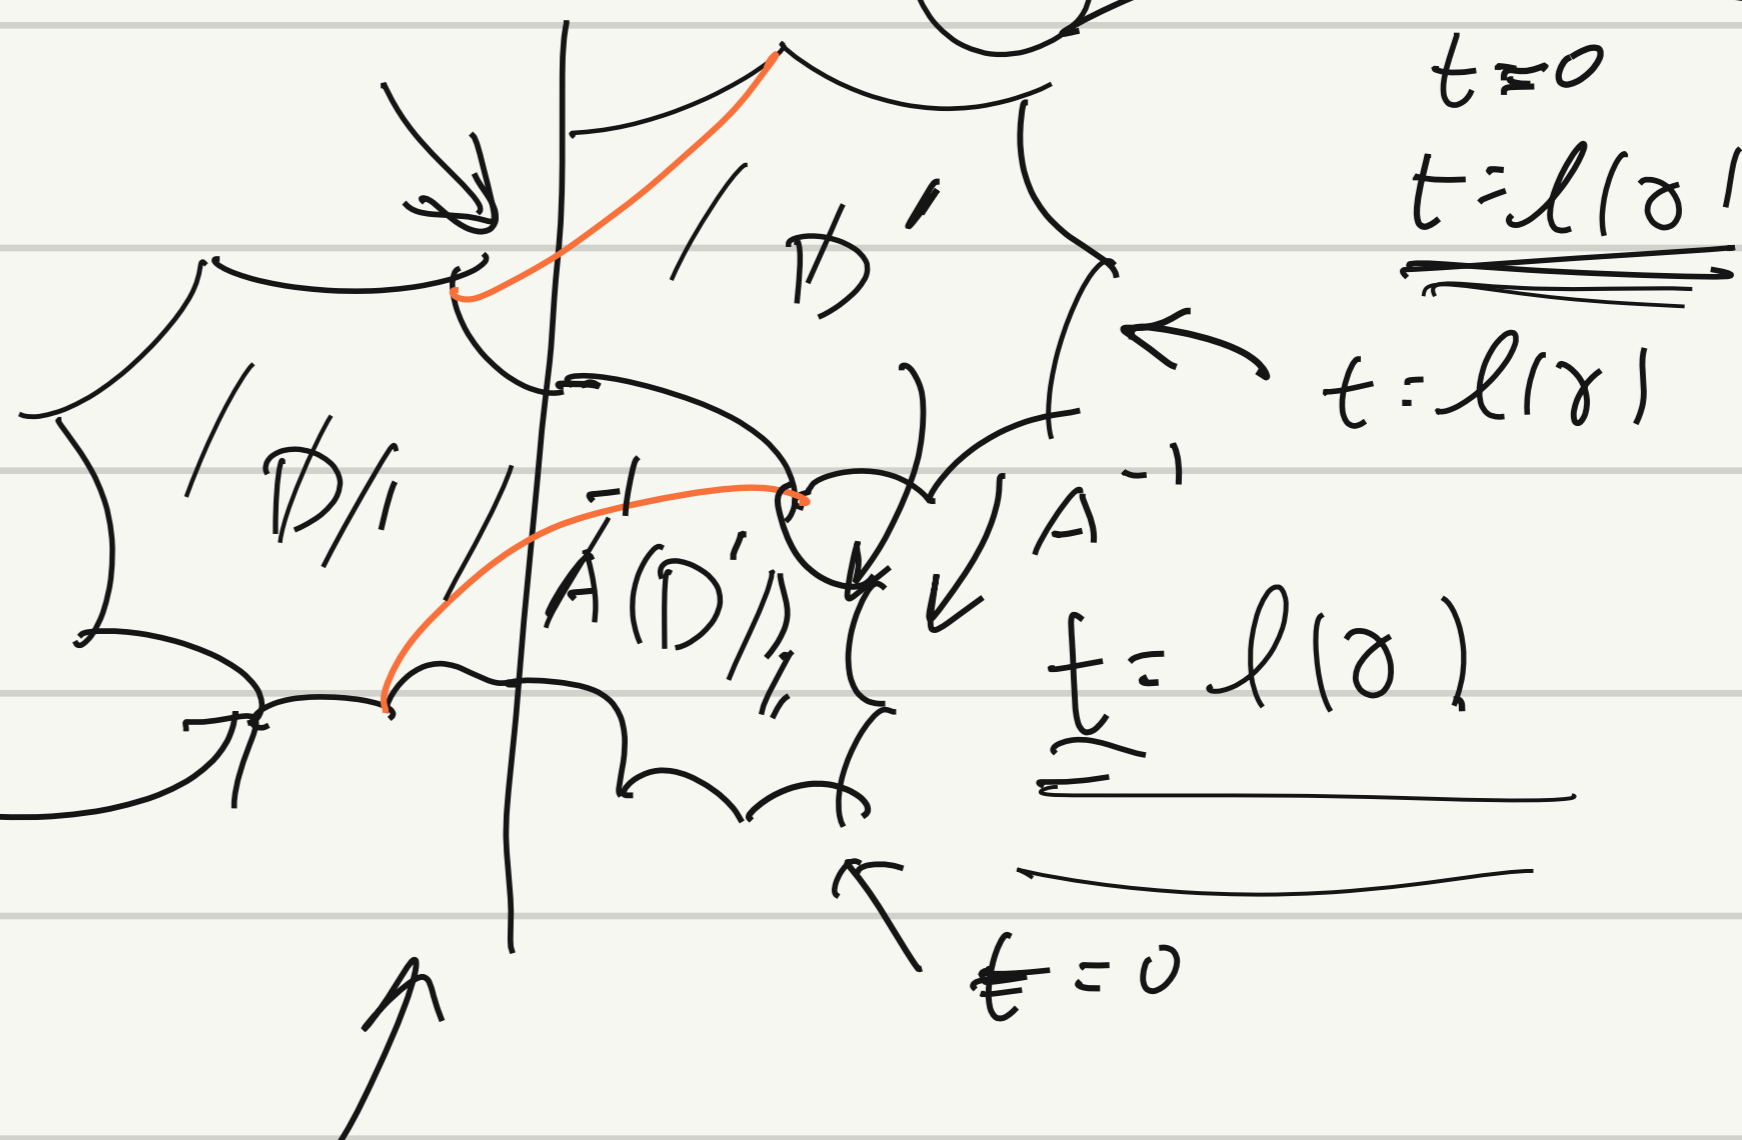 t = 0
t = l(γ)
D'
t = l(γ)
D'
A⁻¹(D')
A⁻¹
t = l(γ)
t = 0